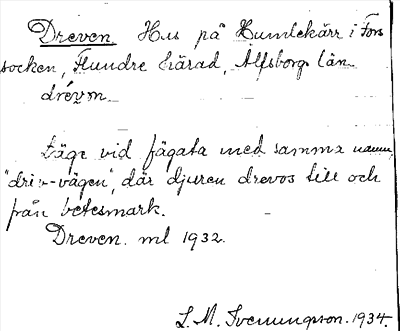 Dreven. Hus på Humlekärr i Fors
socken, Flundre härad, Älfsborgs län
drévon
Läge vid fägata med samma namn,
"driv-vägen" där djuren drevos till och
från betesmark.
Dreven. ml 1932.
L. M. Svenungsson. 1934.